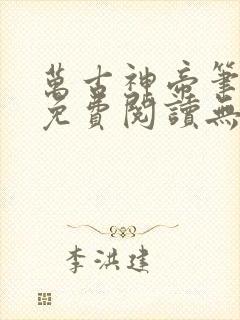 萬古神帝筆
免費閱讀無
李洪建